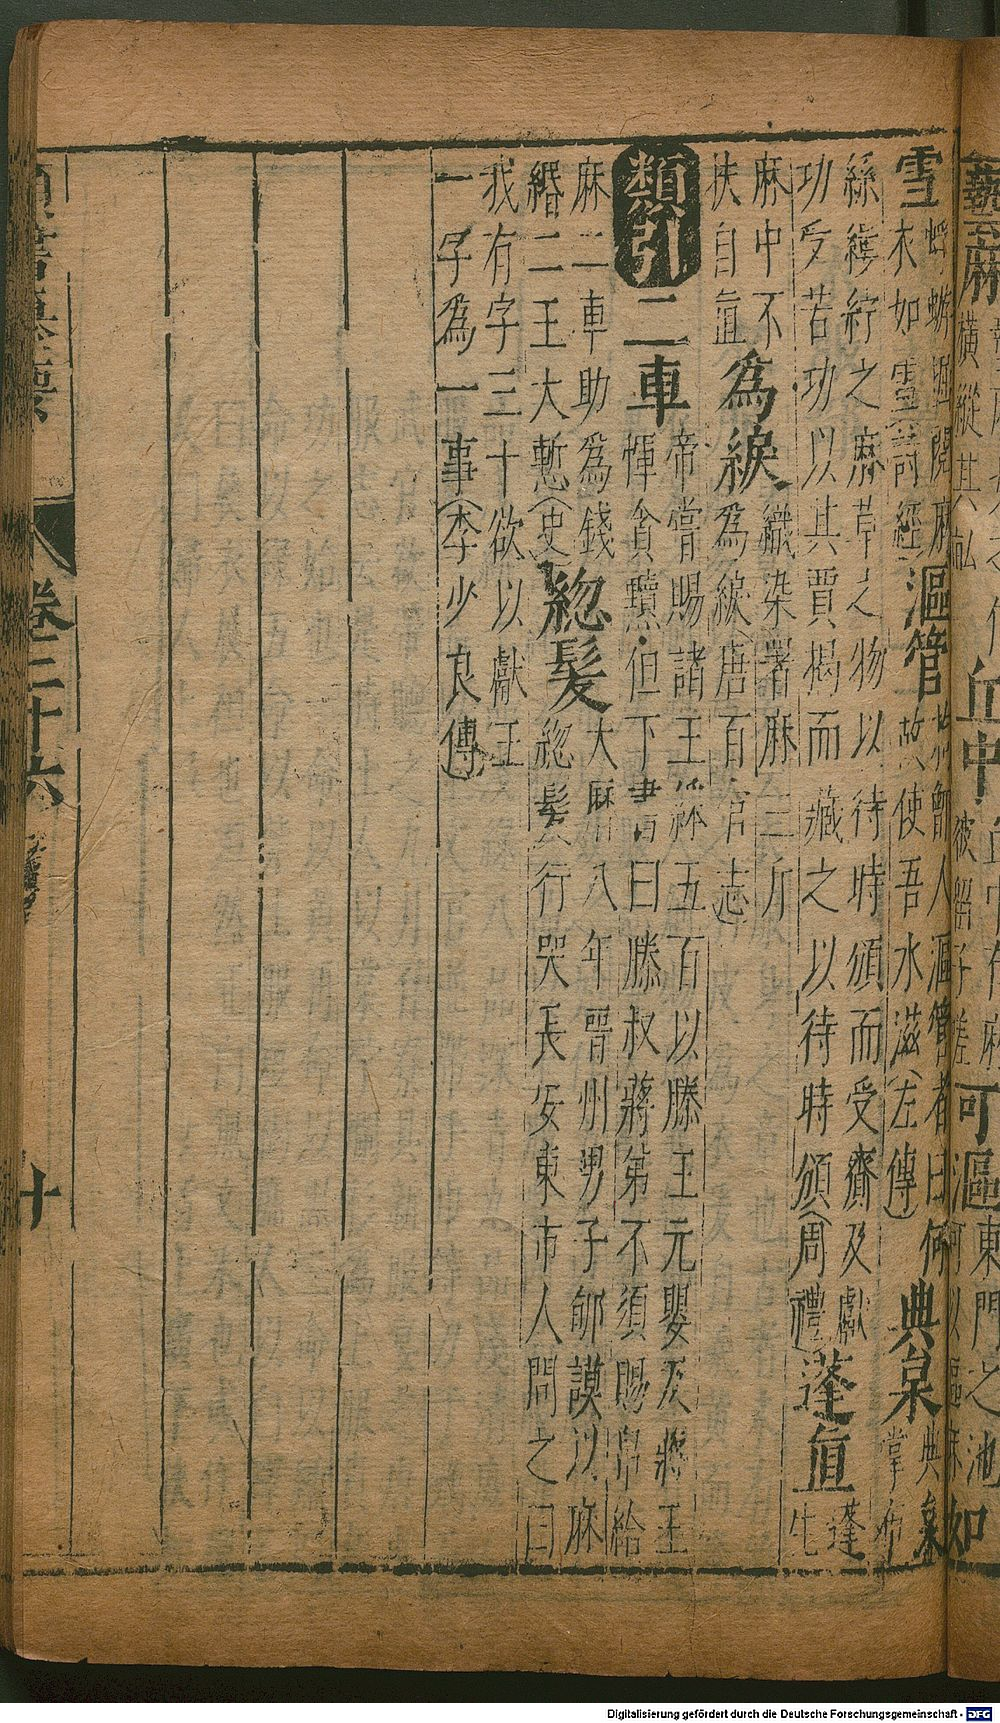 橫縱其畝 丘中 可漚 東門之池 如
雪 蜉蝣掘閱麻
衣如雪(詩經) 漚菅 拘鄫人漚菅者曰何
故使吾水滋(左傳) 典枲 典枲
掌布
絲縷紵之麻草之物以待時頒而受齎及獻
功受苦功以其賈揭而藏之以待時頒(周禮) 蓬直 蓬
生
麻中不
扶自直 為綟 織染署麻三斤
為綟(唐百官志)
類引 二車 帝嘗賜諸王綵五百以滕王元嬰及蔣王
惲貪黷但下書曰滕叔蔣第不須賜帛給
麻二車助為錢
緡二王大慙(史) 總髮 大曆八年晉州男子郇謨以麻
總髮行哭長安東市人問之曰
我有字三十欲以獻王
一字為一事(李少良傳)
類書纂要 卷二十六 十
Digitalisierung gefördert durch die Deutsche Forschungsgemeinschaft - DFG